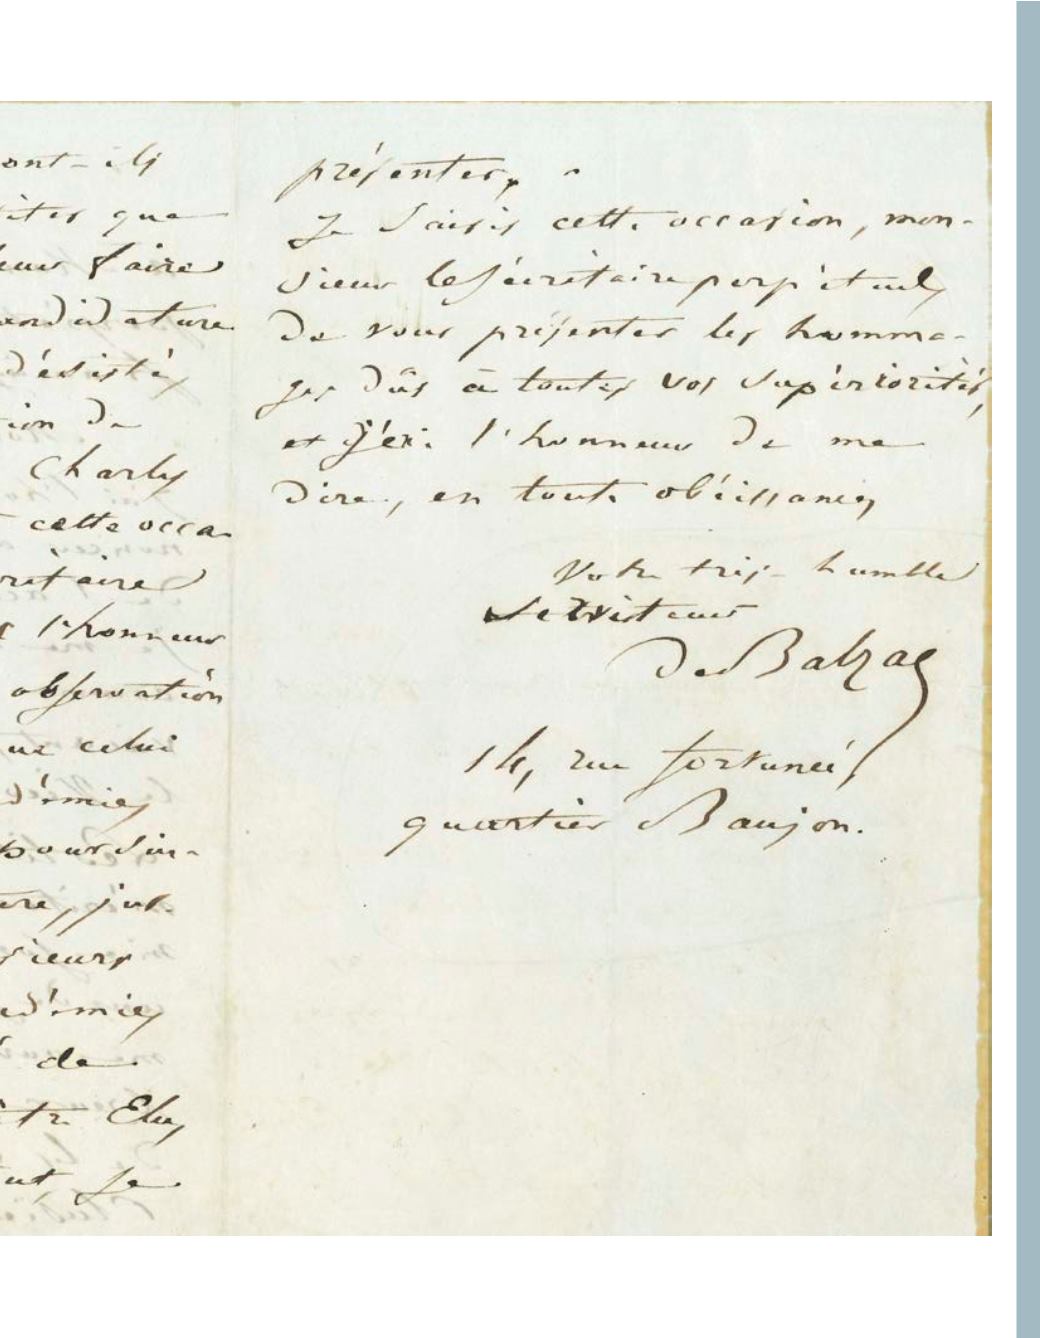 ont-ils
tites que
leur faire
andidature
désisté,
tion de
Charles
cette occa-
crétaire
l'honneur
observation
ue celui
adémie,
poursui-
ure, jus-
sieurs
adémie,
de
être Elu,
Je
présenter.
Je saisis cette occasion, mon-
sieur le Sécrétaire perpétuel,
De vous présenter les homma-
ges dûs à toutes vos supériorités,
et j'ai l'honneur De me
Dire, en toute obéissance,
Votre très-humble
Serviteur
De Balzac
14, rue fortunée,
quartier Baujon.